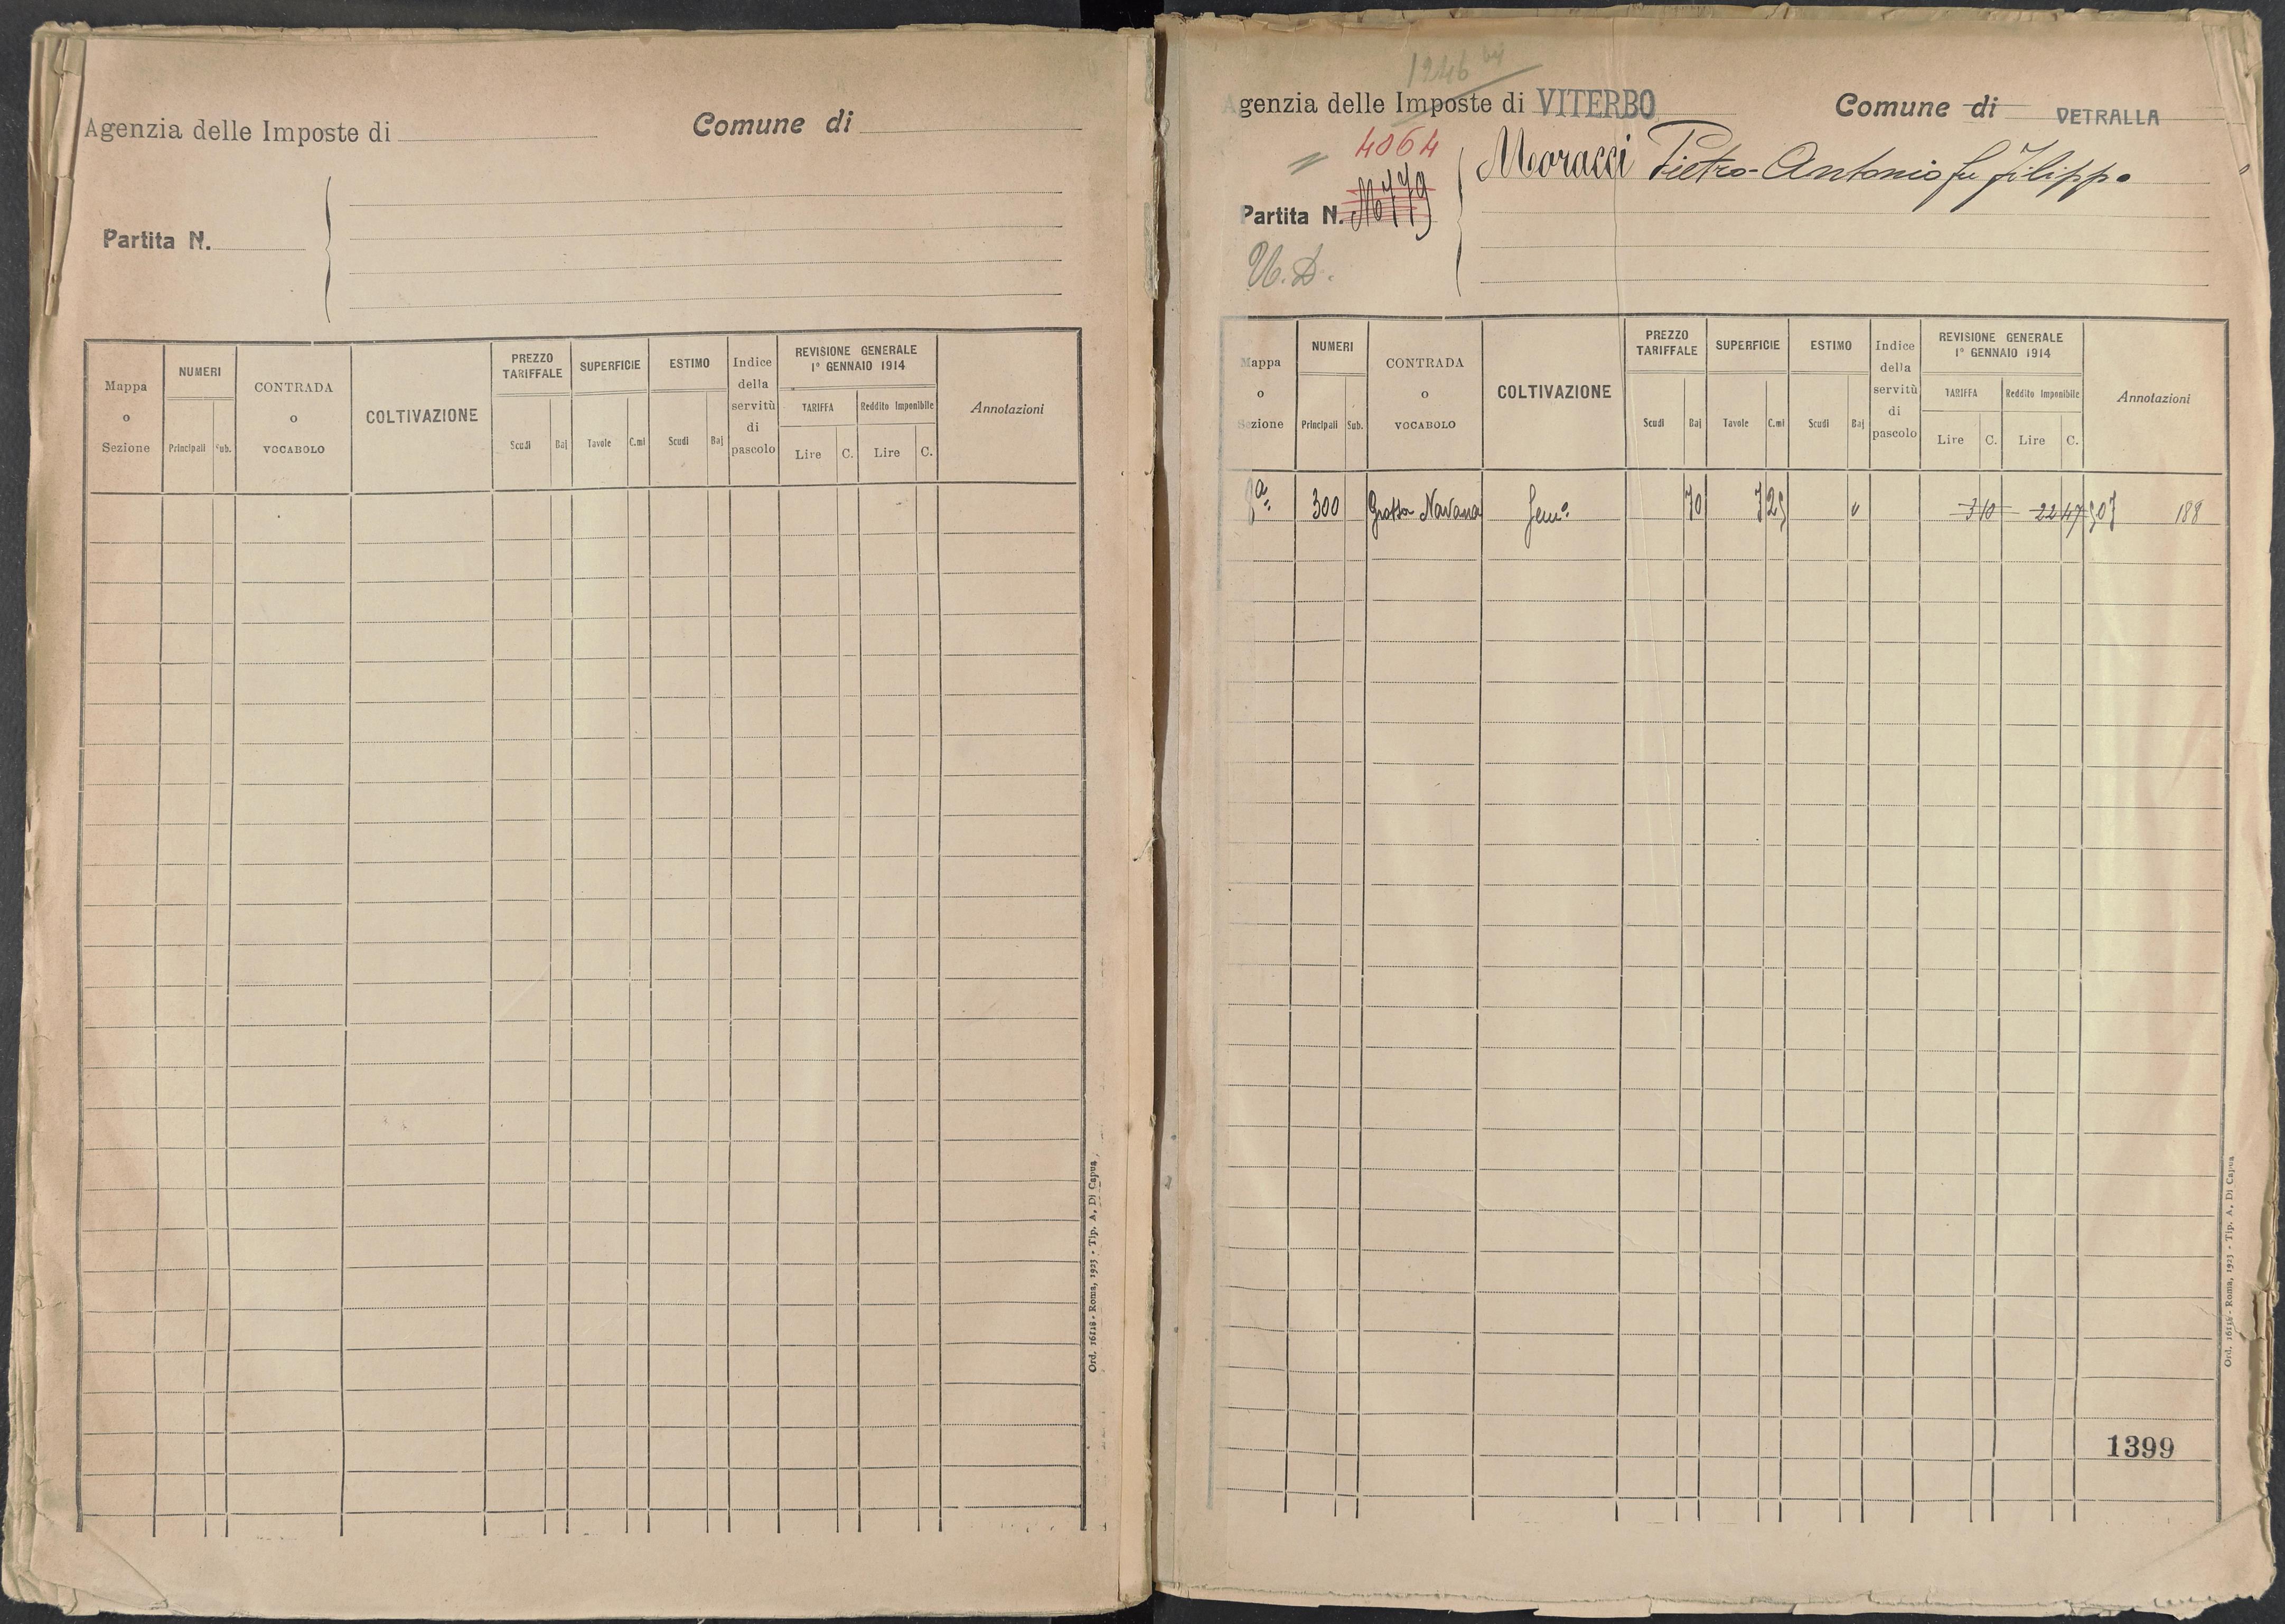 Agenzia delle Imposte di
Comune di
Partita N.
Mappa o Sezione
NUMERI
Principali
Sub.
CONTRADA o VOCABOLO
COLTIVAZIONE
PREZZO TARIFFALE
Scudi
Baj
SUPERFICIE
Tavole
C.mi
ESTIMO
Scudi
Baj
Indice della servitù di pascolo
REVISIONE GENERALE
1° GENNAIO 1914
TARIFFA
Lire
C.
Reddito Imponibile
Lire
C.
Annotazioni
Ord. 16118 - Roma, 1923 - Tip. A. Di Capua
1246 bis
Agenzia delle Imposte di VITERBO
Comune di VETRALLA
4064
Moracci Pietro-Antonio fu Filippo
Partita N. M779
Mappa o Sezione
NUMERI
Principali
Sub.
CONTRADA o VOCABOLO
COLTIVAZIONE
PREZZO TARIFFALE
Scudi
Baj
SUPERFICIE
Tavole
C.mi
ESTIMO
Scudi
Baj
Indice della servitù di pascolo
REVISIONE GENERALE
1° GENNAIO 1914
TARIFFA
Lire
C.
Reddito Imponibile
Lire
C.
Annotazioni
300 Grotta Navana Sem.° 70 7 25 " 3 10 22 47 507 188
1399
Ord. 16118 - Roma, 1923 - Tip. A. Di Capua